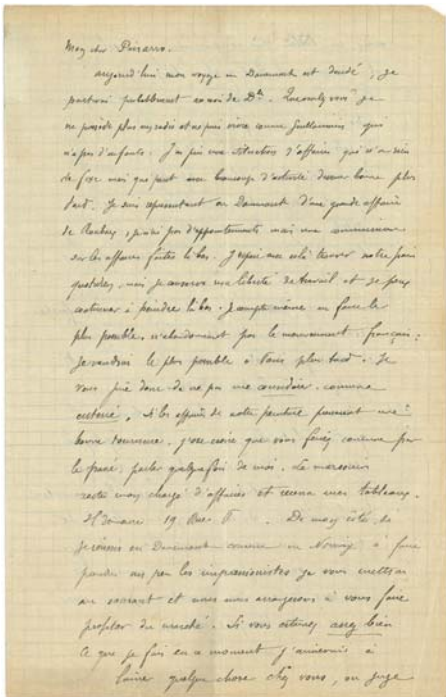 Mon cher Pissarro.
aujourd'hui mon voyage en Danemark est décidé, je
partirai probablement au mois de Dbre. Que voulez vous je
ne possède plus un radis et ne puis vivre comme Guillaumin qui
n'a pas d'enfants. J'ai pris une situation d'affaires qui n'a rien
de fixe mais qui peut avec beaucoup d'activité devenir bonne plus
tard. Je suis représentant en Danemark d'une grande affaire
de Roubaix, je n'ai pas d'appointements mais une commission
sur les affaires faites là bas. J'espère avec cela trouver notre pain
quotidien, mais je conserve ma liberté de travail et je peux
continuer à peindre là bas. Je compte même en faire le
plus possible, n'abandonnant pas le mouvement français:
Je viendrai le plus possible à Paris plus tard. Je
vous prie donc de ne pas me considérer comme
enterré. Si les affaires de notre peinture prennent une
bonne tournure, j'ose croire que vous ferez comme par
le passé, parler quelquefois de moi. Le
reste mon chargé d'affaires et recevra mes tableaux.
19 Rue. De mon côté, si
je réussis en Danemark comme en Norwège à faire
prendre un peu les impressionistes je vous mettrai
au courant et nous nous arrangerons à vous faire
profiter du marché. Si vous estimez assez bien
ce que je fais en ce moment j'aimerais à
laisser quelque chose chez vous, on juge